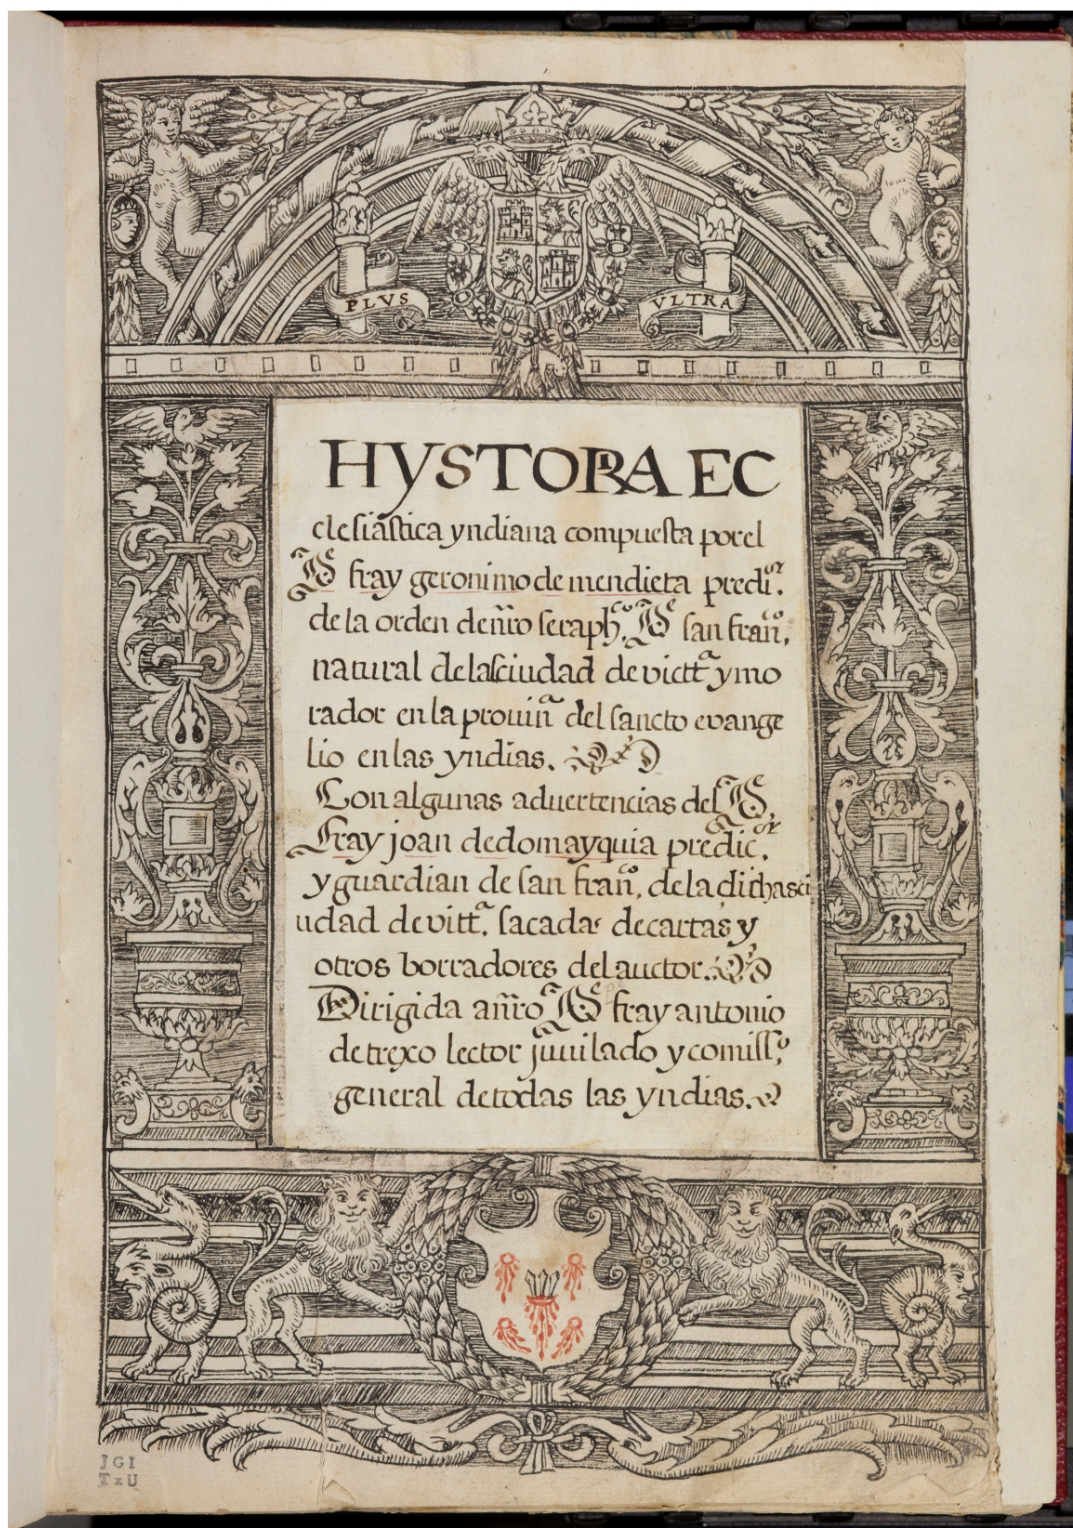 PLVS VLTRA
HYSTORIA EC
clesiastica yndiana compuesta por el
P.e fray geronimo de mendieta predi.or
de la orden de nr̃o seraph.co P.e san fran̄.co,
natural de la sciudad de victt.a y mo
rador en la prouin̄.a del sancto evange
lio en las yndias.
Con algunas aduertencias del P.e
Fray joan de domayquia predic.or
y guardian de san fran̄.co, de la dicha sci
udad de vitt.a, sacadas de cartas y
otros borradores del auctor.
Dirigida a nr̃o P.e fray antonio
de trexo lector juuilado y comiss.o
general de todas las yndias.
JGI
TxU